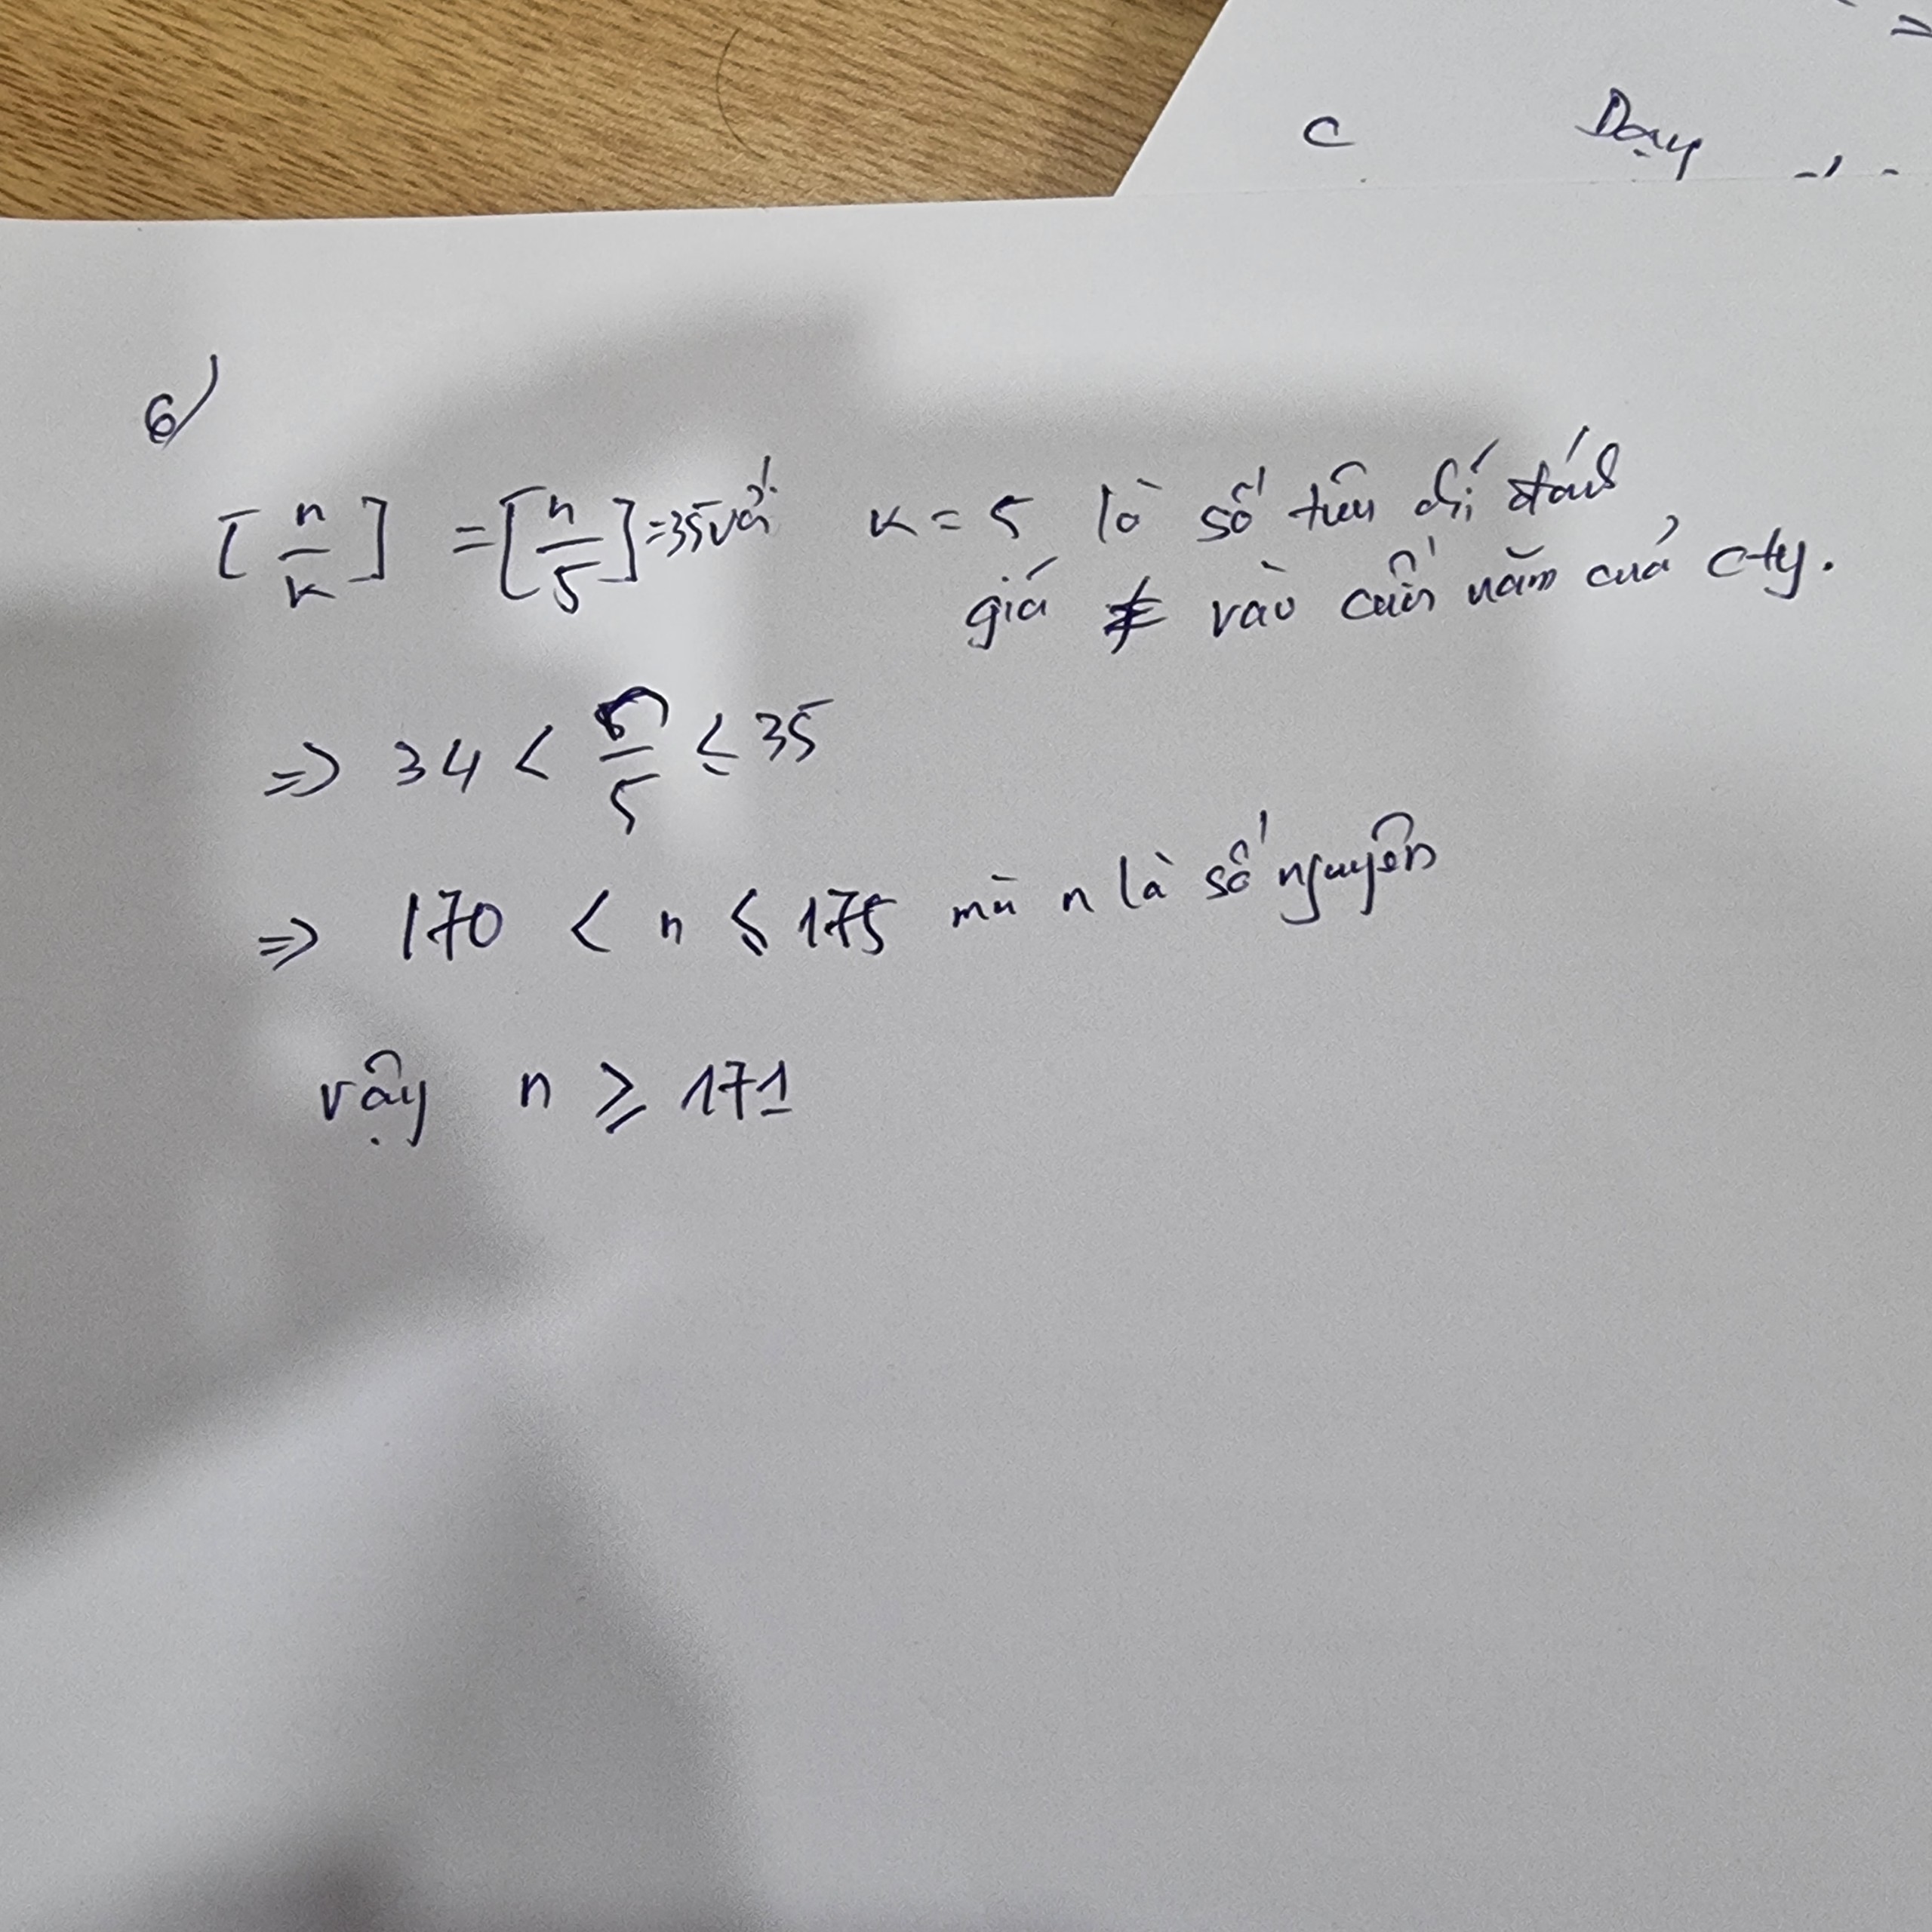 =
C Dạy
6)
[n/k] = [n/5] = 35 với k = 5 là số tiêu chí đánh
giá vào cuối năm của cty.
=> 34 < n/5 ≤ 35
=> 170 < n ≤ 175 mà n là số nguyên
vậy n ≥ 171